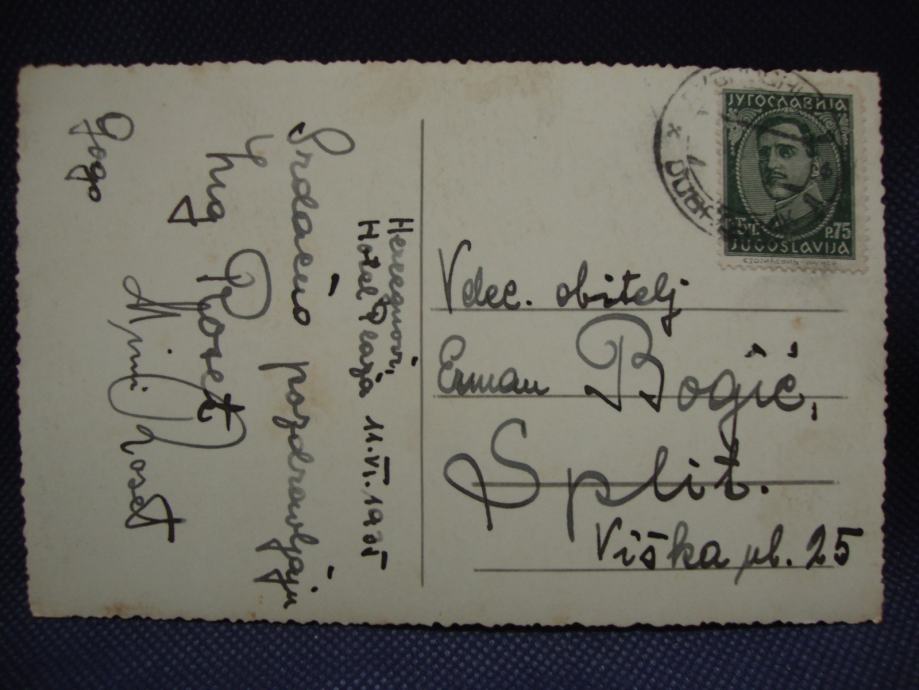 Hercegnovi,
Hotel Plaža 11.VI.1935
Srdačno pozdravljaju
Roset
Mimi Roset
Gogo
ЈУГОСЛАВИЈА
P.75
JUGOSLAVIJA
Vdec. obitelj
Erman Bogić,
Split.
Viška ul. 25